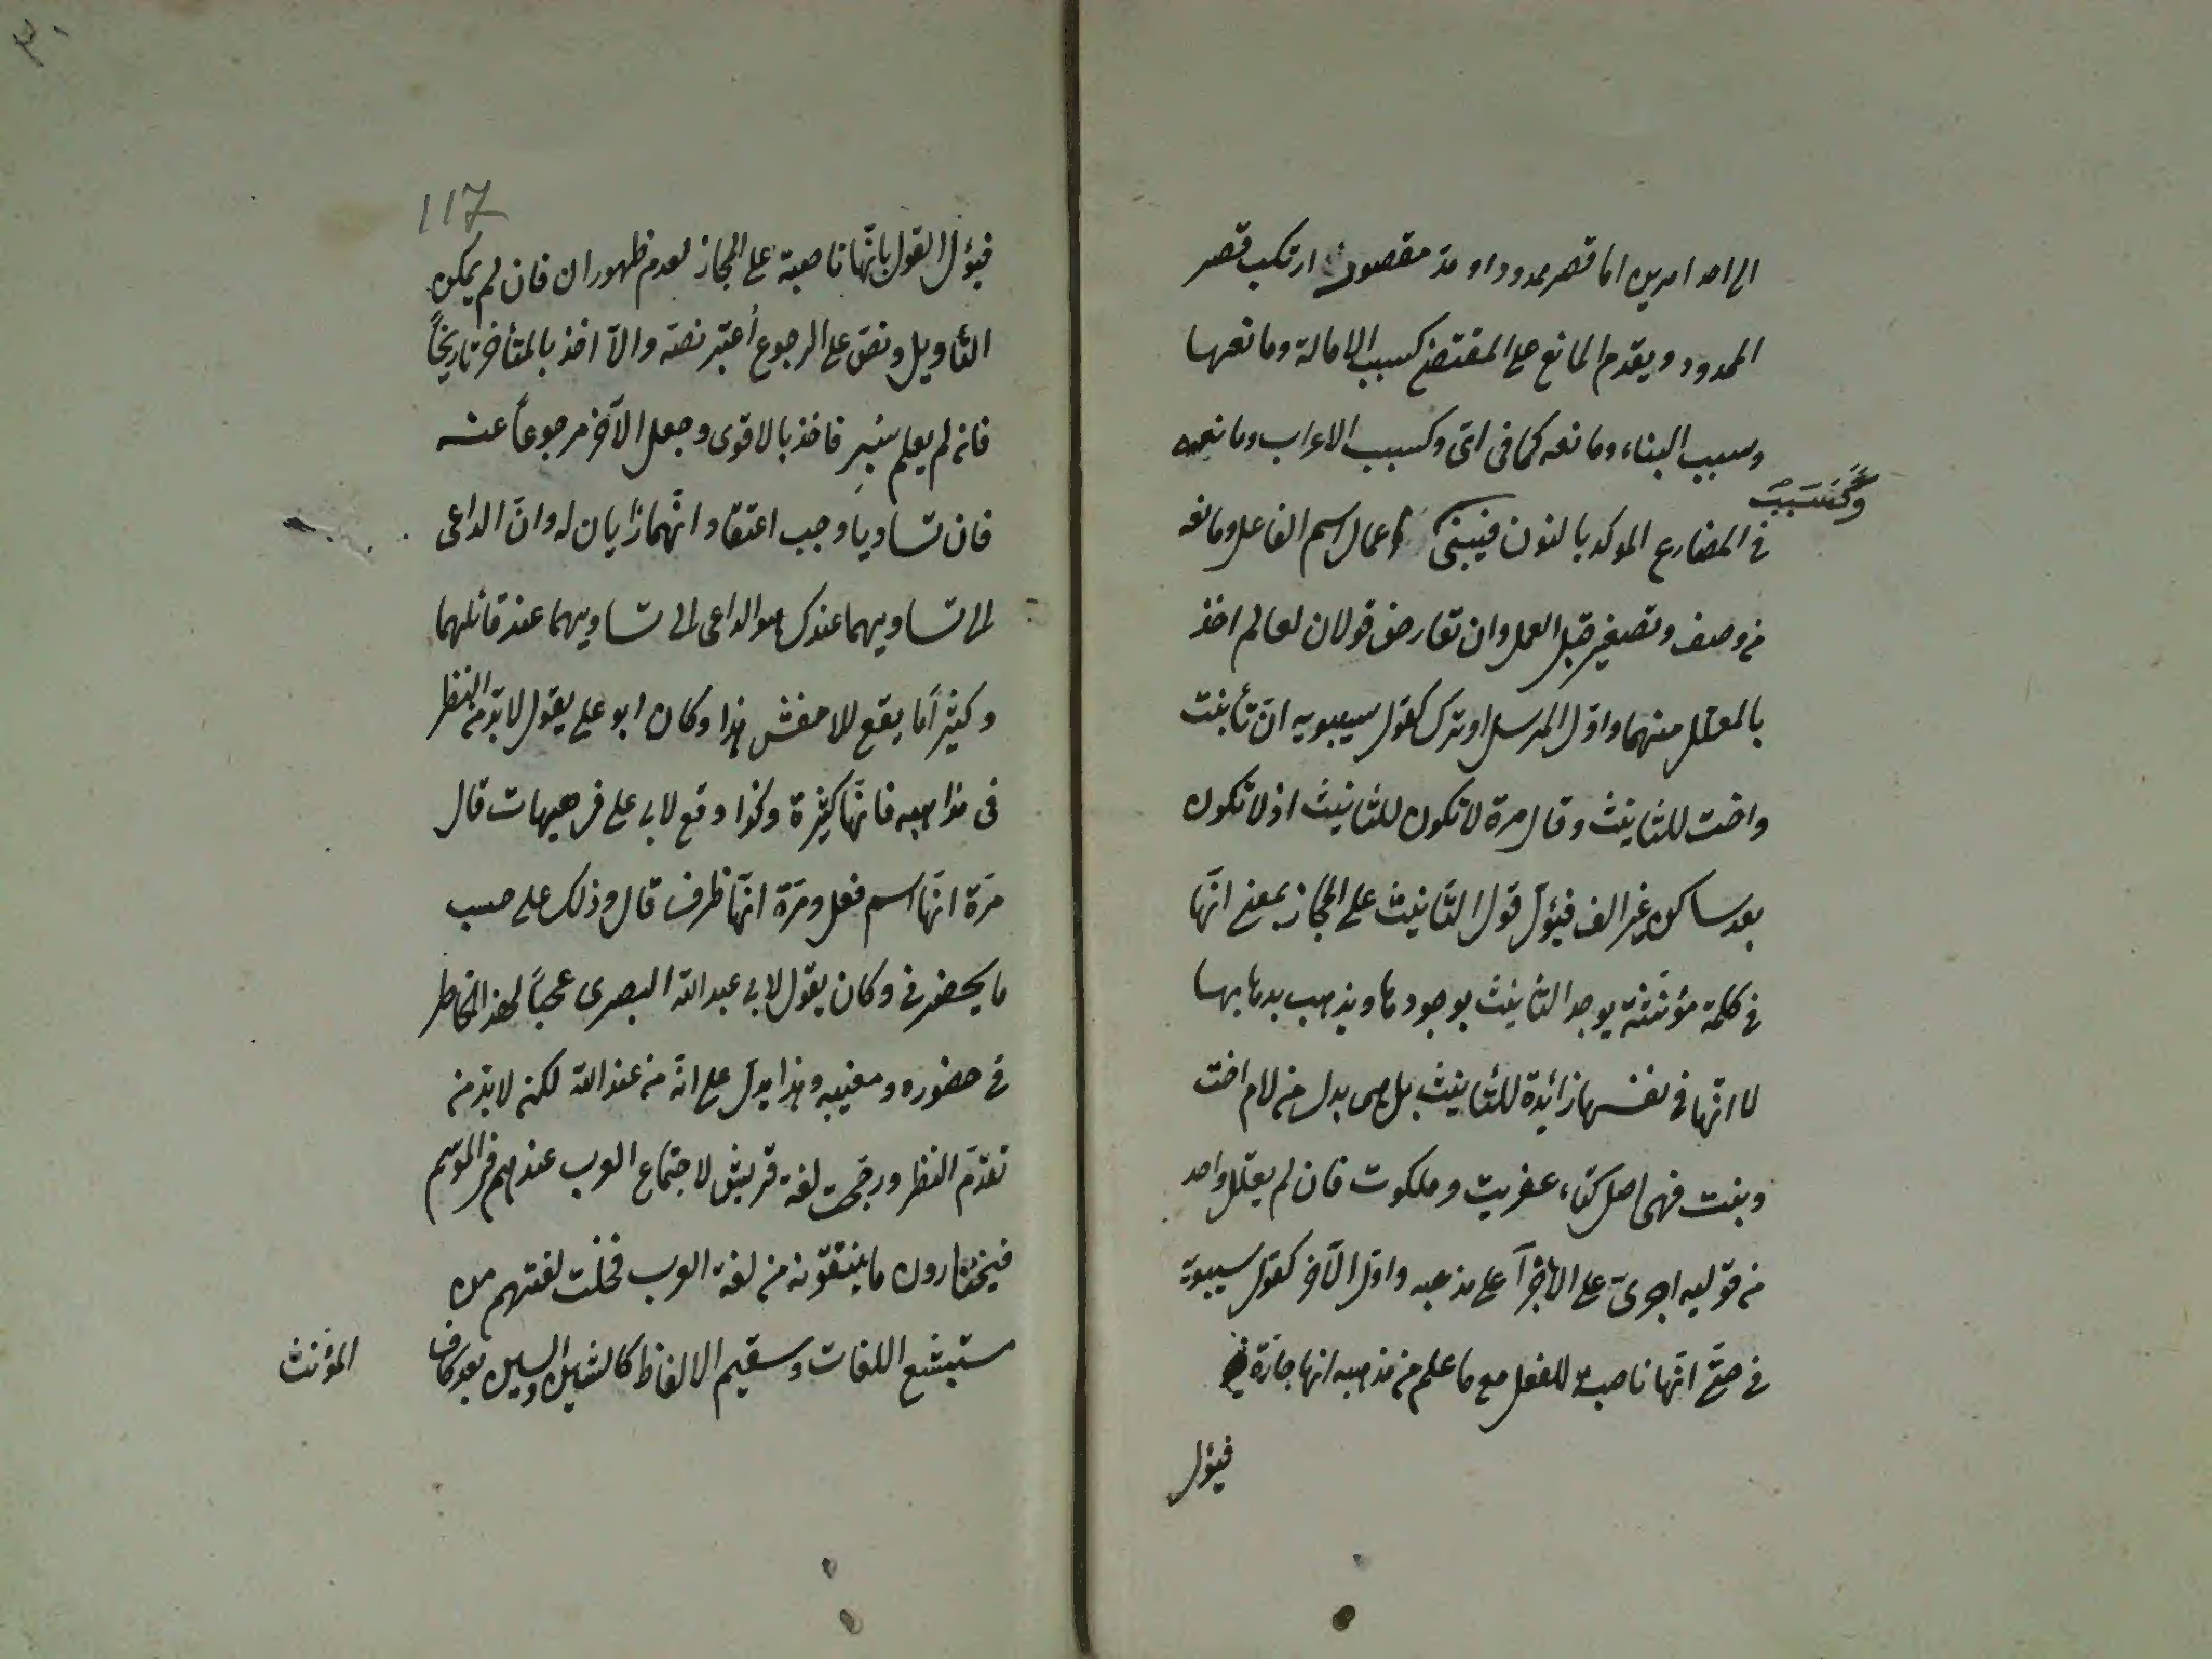 الى احد امرين اما قصر ممدود او مدّ مقصور ارتكب قصر
الممدود ويقدم المانع على المقتضى كسبب الامالة ومانعها
وسبب البناء ومانعه كما فى اىّ وكسبب الاعراب ومانعه
وكسبب
فى المضارع الموكد بالنون فيبنى اعمال اسم الفاعل ومانعه
من وصف وتصغير قبل العمل وان تعارض قولان لعالم اخذ
بالمعلل منهما واوّل المرسل او ترك كقول سيبويه انّ تأ بنت
واخت للتانيث وقال مرة لا تكون للتانيث اذ لا تكون
بعد ساكن غير الف فيؤل قول التانيث على المجاز بمعنى انّها
فى كلمة مؤنثة يوجد التانيث بوجودها ويذهب بذهابها
لا انّها فى نفسها زائدة للتانيث بل هى بدل من لام اخت
وبنت فهى اصل كتاء عفريت وملكوت فان لم يعلل واحد
من قوليه اجرى على مذهبه واوّل الآخر كقول سيبويه
فى حتّى انّها ناصبة للفعل مع ما علم من مذهبه انها جارّة
فيؤل
117
فيؤل القول بانّها ناصبة على المجاز لعدم ظهور ان فان لم يمكن
التأويل ونصّ على الرجوع أعتبر نصّه والّا اخذ بالمتأخر تاريخاً
فان لم يعلم سُبر فاخذ بالاقوى وجعل الآخر مرجوعاً عنه
فان تساويا وجب اعتقاد انّهما رايان له وانّ الداعى
الى تساويهما عندك هو الداعى الى تساويهما عند قائلهما
وكثيراً ما يقع للاخفش هذا وكان ابو على يقول لا بدّ من النظر
فى مذاهبه فانّها كثيرة وكذا وقع لابى على فى هيهات قال
مرّة انّها اسم فعل ومرّة انّها ظرف قال وذلك على حسب
ما يحضرنى وكان يقول لابى عبد الله البصرى عجباً لهذا الخاطر
فى حضوره ومغيبه وهذا يدلّ على انّه من عند الله لكن لا بدّ من
تقدّم النظر ورجّحت لغة قريش لاجتماع العرب عندهم فى الموسم
فيختارون ما ينتقونه من لغة العرب فخلت لغتهم من
مستبشع اللغات وسقيم الالفاظ كالشين والسين بعد كاف
المؤنث